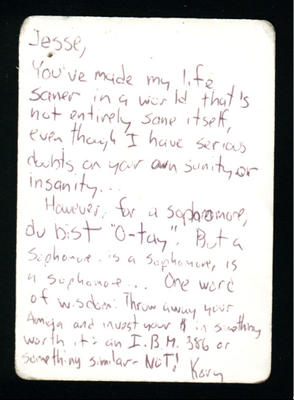 Jesse,
You've made my life
saner in a world that's
not entirely sane itself,
even though I have serious
doubts on your own sanity, or
insanity...
However, for a sophomore,
du bist "O-tay". But a
sophomore is a sophomore, is
a sophomore... One word
of wisdom: Throw away your
Amiga and invest your $ in something
worth it: an I.B.M. 386 or
something similar - NOT!